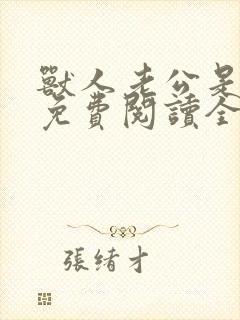 獸人老公是
免費閱讀全
張緒才